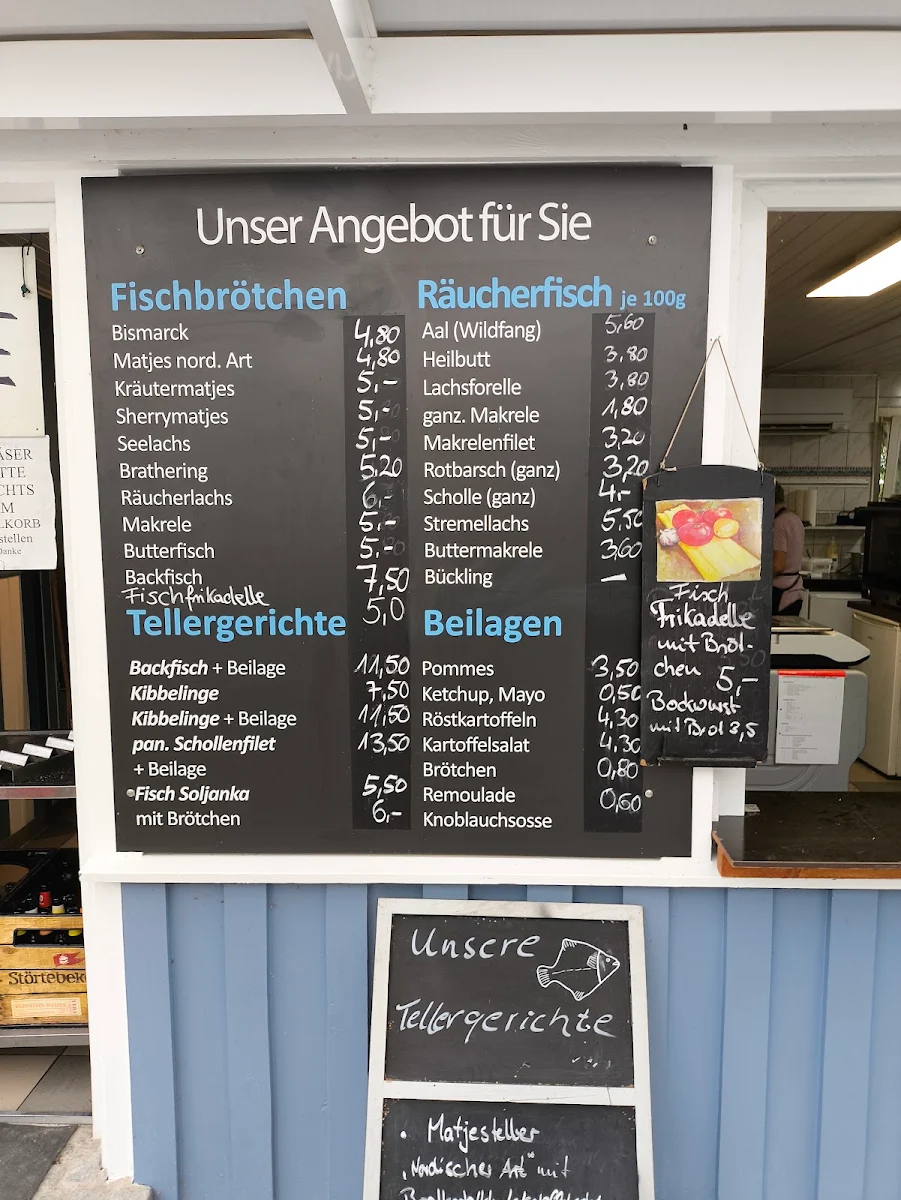 Unser Angebot für Sie
Fischbrötchen
Bismarck 4,80
Matjes nord. Art 4,80
Kräutermatjes 5,-
Sherrymatjes 5,-
Seelachs 5,-
Brathering 5,20
Räucherlachs 6,-
Makrele 5,-
Butterfisch 5,-
Backfisch 7,50
Fischfrikadelle 5,0
Tellergerichte
Backfisch + Beilage 11,50
Kibbelinge 7,50
Kibbelinge + Beilage 11,50
pan. Schollenfilet 13,50
+ Beilage
Fisch Soljanka 5,50
mit Brötchen 6,-
Räucherfisch je 100g
Aal (Wildfang) 5,60
Heilbutt 3,80
Lachsforelle 3,80
ganz. Makrele 1,80
Makrelenfilet 3,20
Rotbarsch (ganz) 3,20
Scholle (ganz) 4,-
Stremellachs 5,50
Buttermakrele 3,60
Bückling —
Beilagen
Pommes 3,50
Ketchup, Mayo 0,50
Röstkartoffeln 4,30
Kartoffelsalat 4,30
Brötchen 0,80
Remoulade 0,60
Knoblauchsosse
Fisch
Frikadelle
mit Bröt-
chen 5,-
Bockwurst
mit Brot 3,5
ÄSER
TTE
CHTS
M
LKORB
stellen
Danke
Störtebek
Unsere
Tellergerichte
• Matjesteller
"Nordischer Art" mit